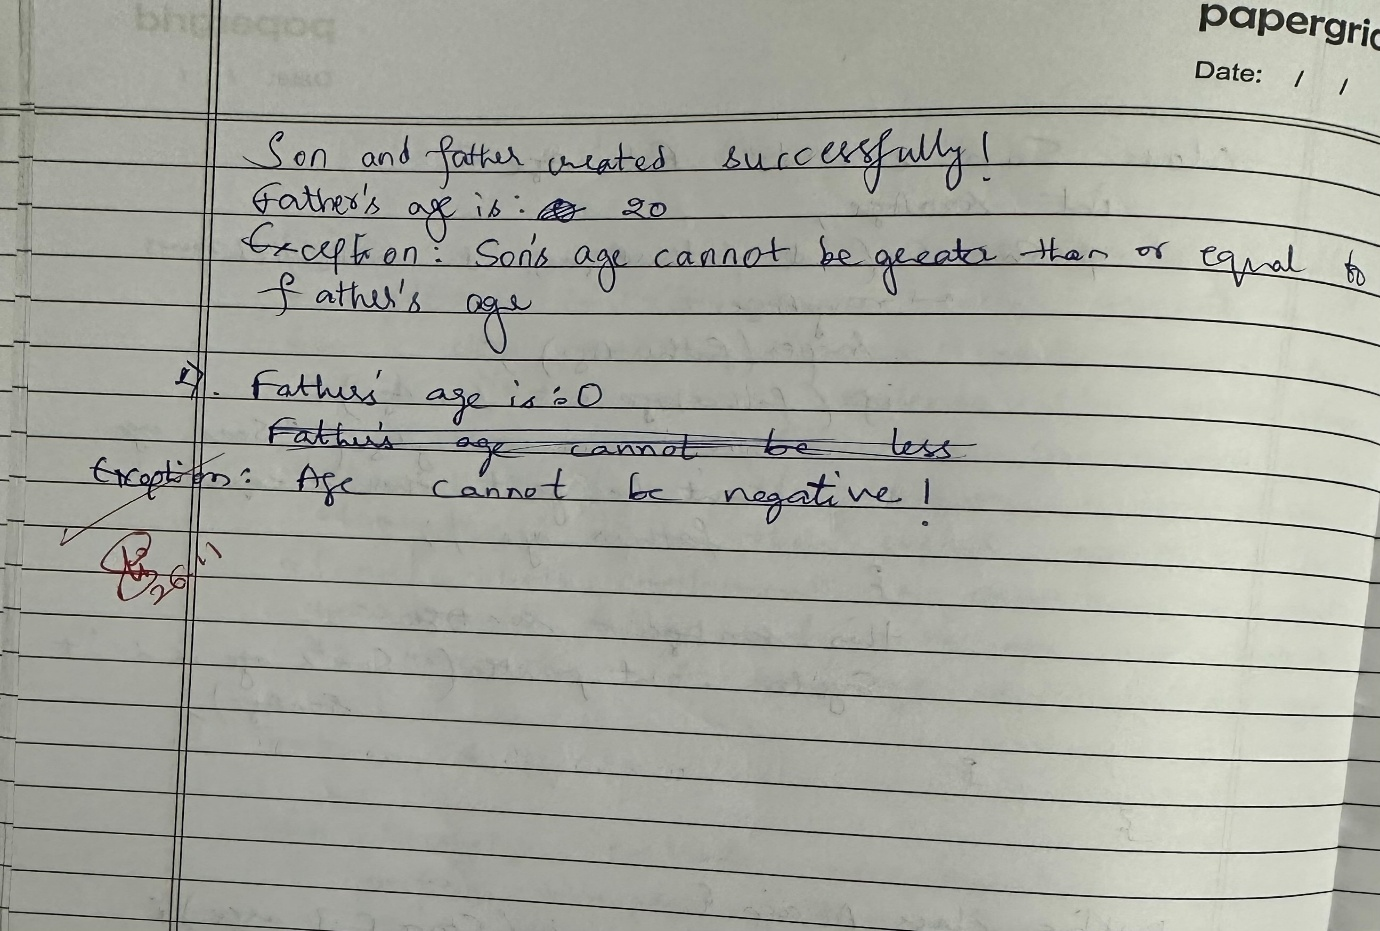 papergrid
Date: / /
Son and father created successfully!
Father's age is: 20
Exception: Son's age cannot be greata than or equal to
father's age
2). Father's age is : 0
Father's age cannot be less
Exception: Age cannot be negative!
26/11